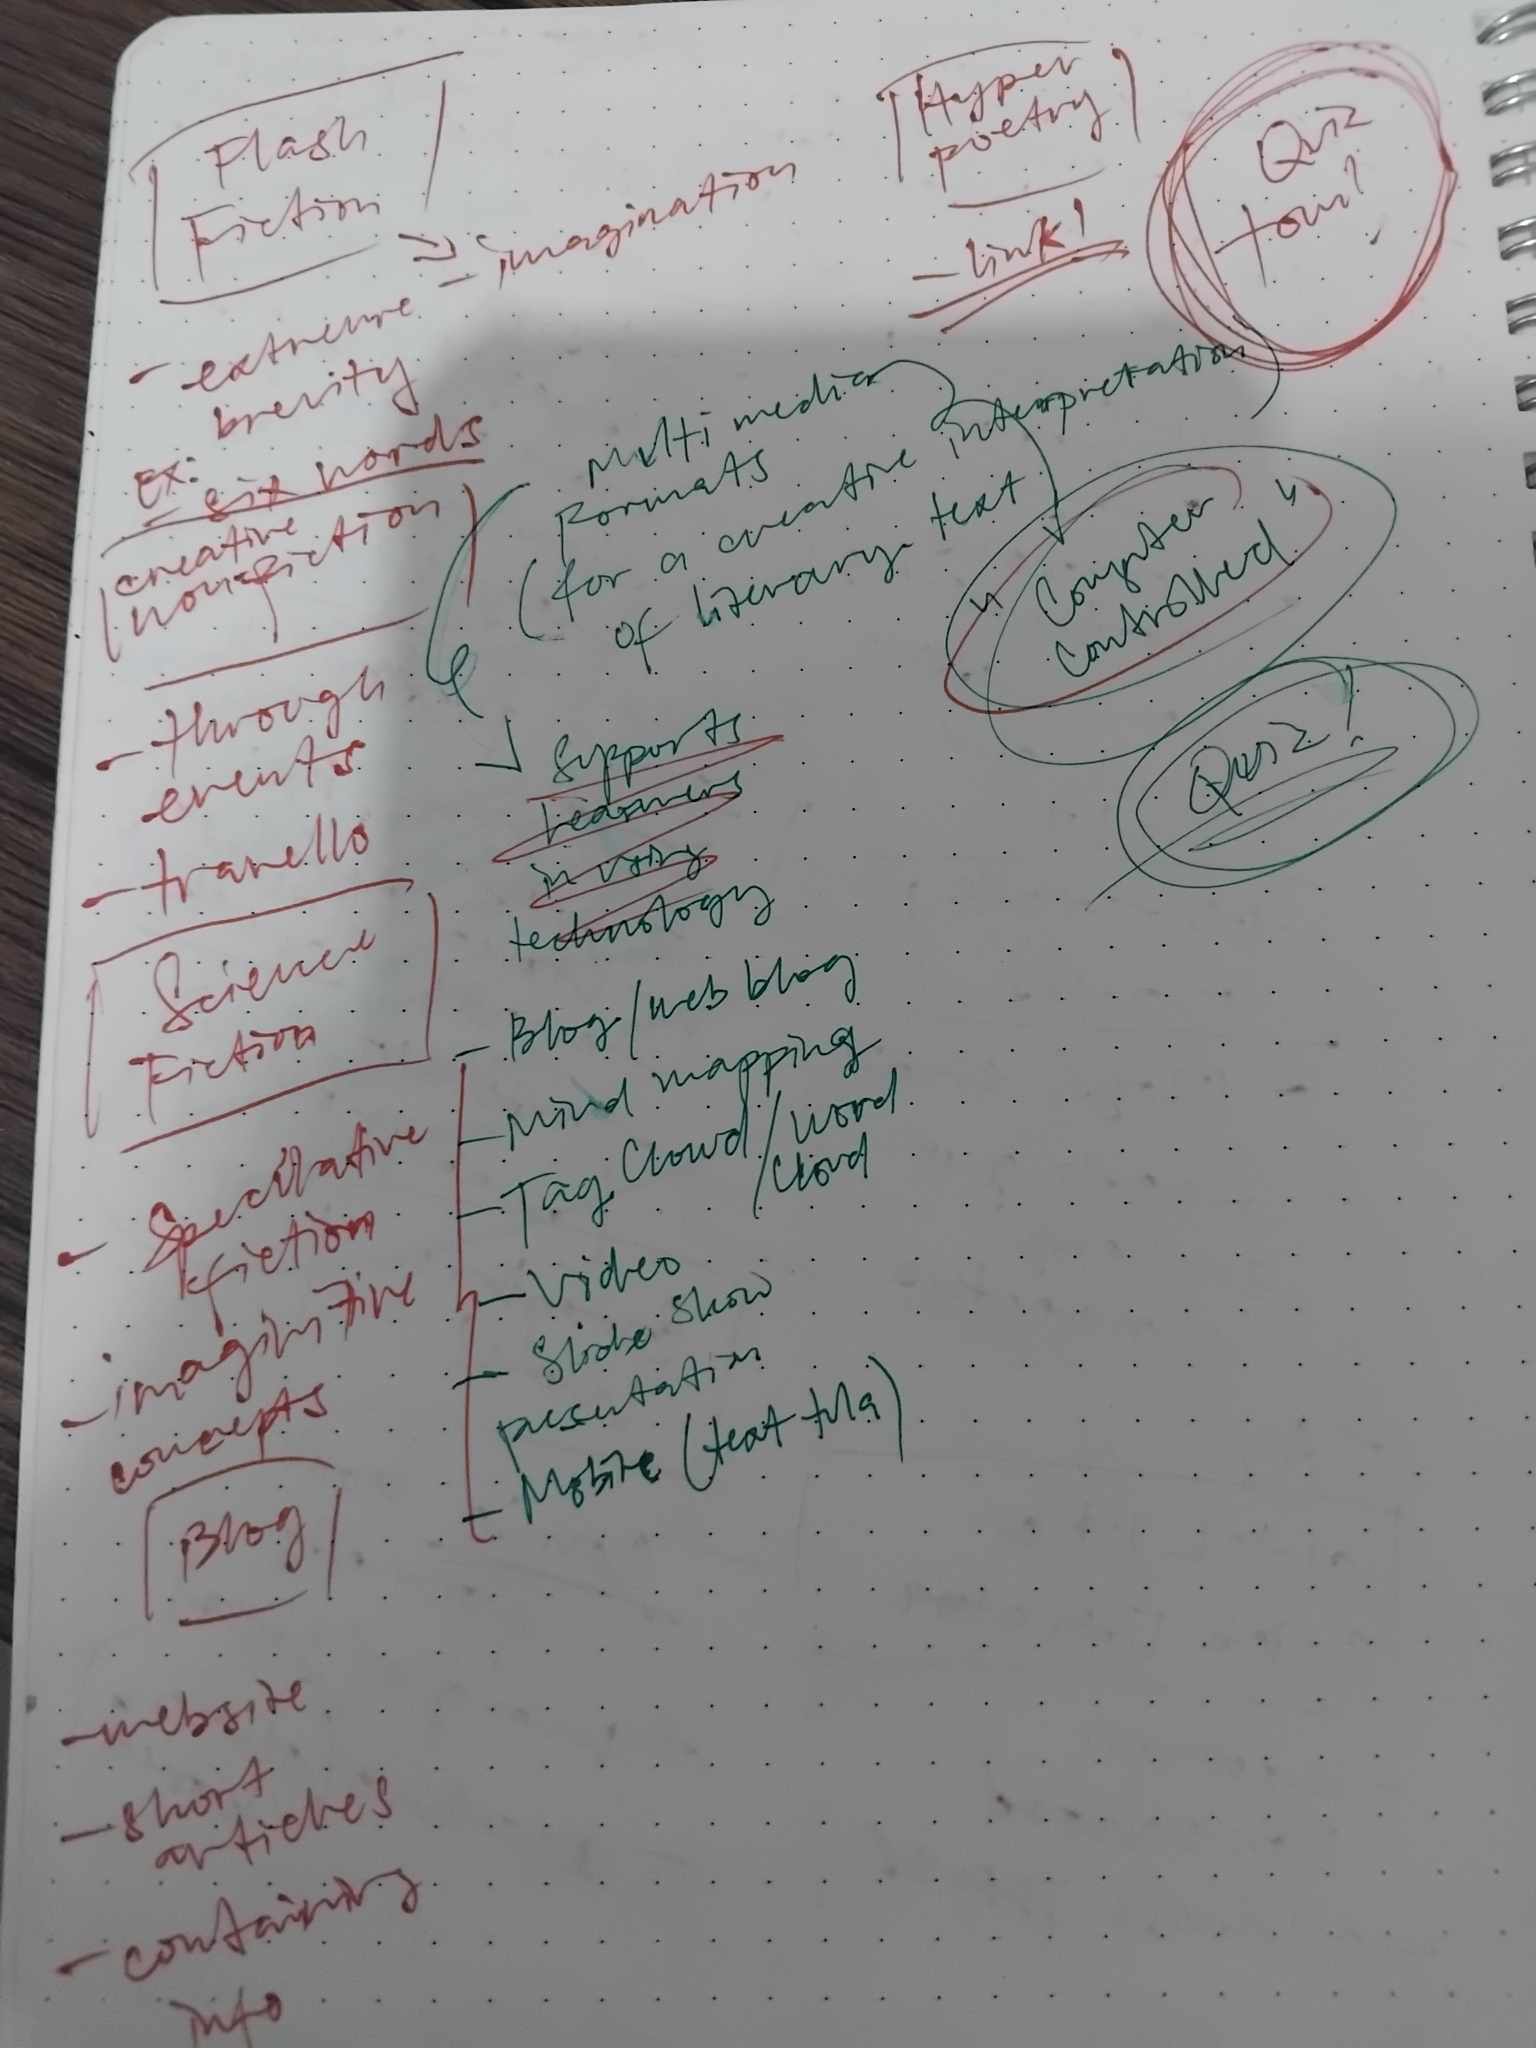 Flash
Fiction
- imagination
- extreme
brevity
Ex:
- six words
creative
nonfiction
- through
events
-
Science
Fiction
- Speculative
fiction
-
concepts
Blog
- website
- short
articles
- containing
info
Hyper
poetry
- link!
Quiz
tom!
Multimedia
Formats
(for a creative interpretation
of literary text
"Computer
Controlled"
Quiz!
Supports
learners
in using
technology
- Blog/web blog
- Mind mapping
- Tag Cloud/Word
/Cloud
- Video
- Slide show
presentation
- Mobile (text tula)